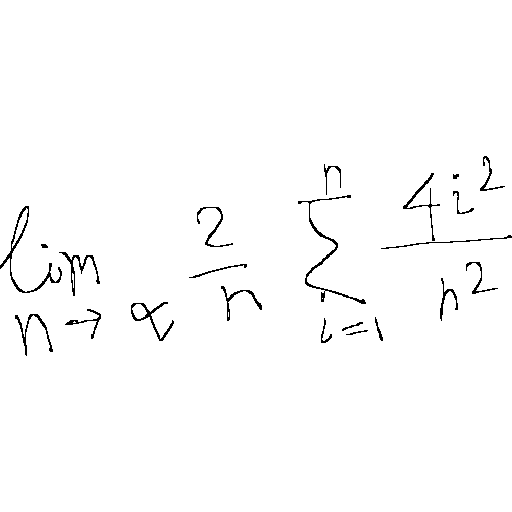 \lim_{n \rightarrow \alpha} \frac{2}{n} \sum_{i=1}^{n} \frac{4i^2}{n^2}